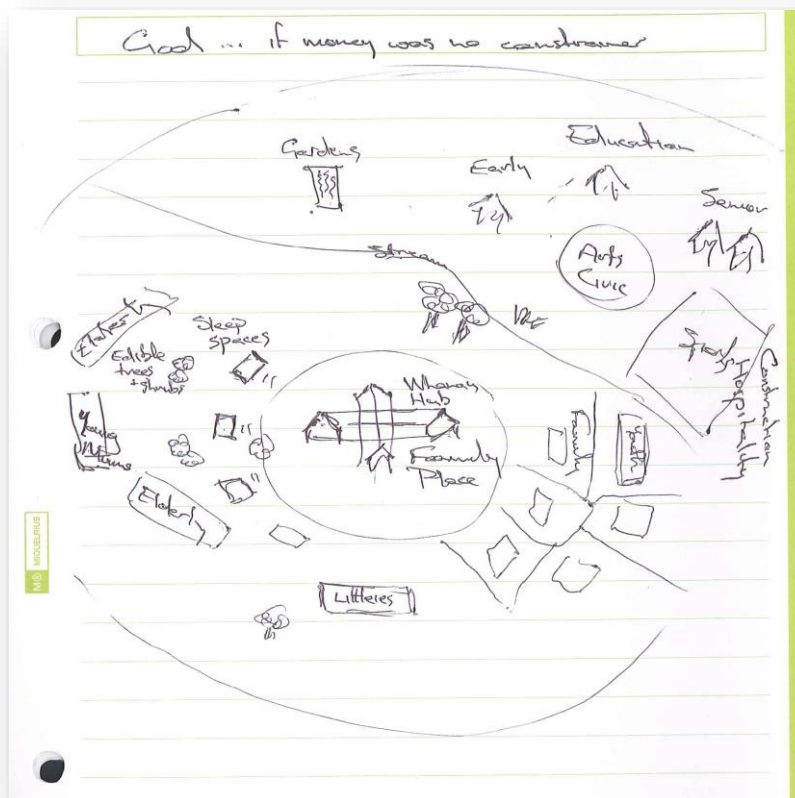 Goal ... if money was no constrainer
Gardens
Early
Education
Senior
Arts
Civic
Stream
Sleep
spaces
Edible
trees
+ shrubs
Young
Mums
Elderly
Whanau
Hub
Family
Place
Family
Youth
Hospitality
Construction
Littleies
MIQUELRIUS